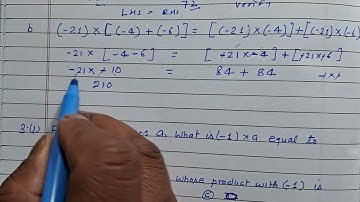 LHS = RHS 72 verify
b (-21) × [(-4) + (-6)] = [(-21) × (-4)] + [(-21) × (-6)
-21 × [-4-6] = [+21 × -4] + [+21 × 6]
-21 × +10 = 84 + 84
210
3.(i) a, what is (-1) × a equal to
whose product with (-1) is